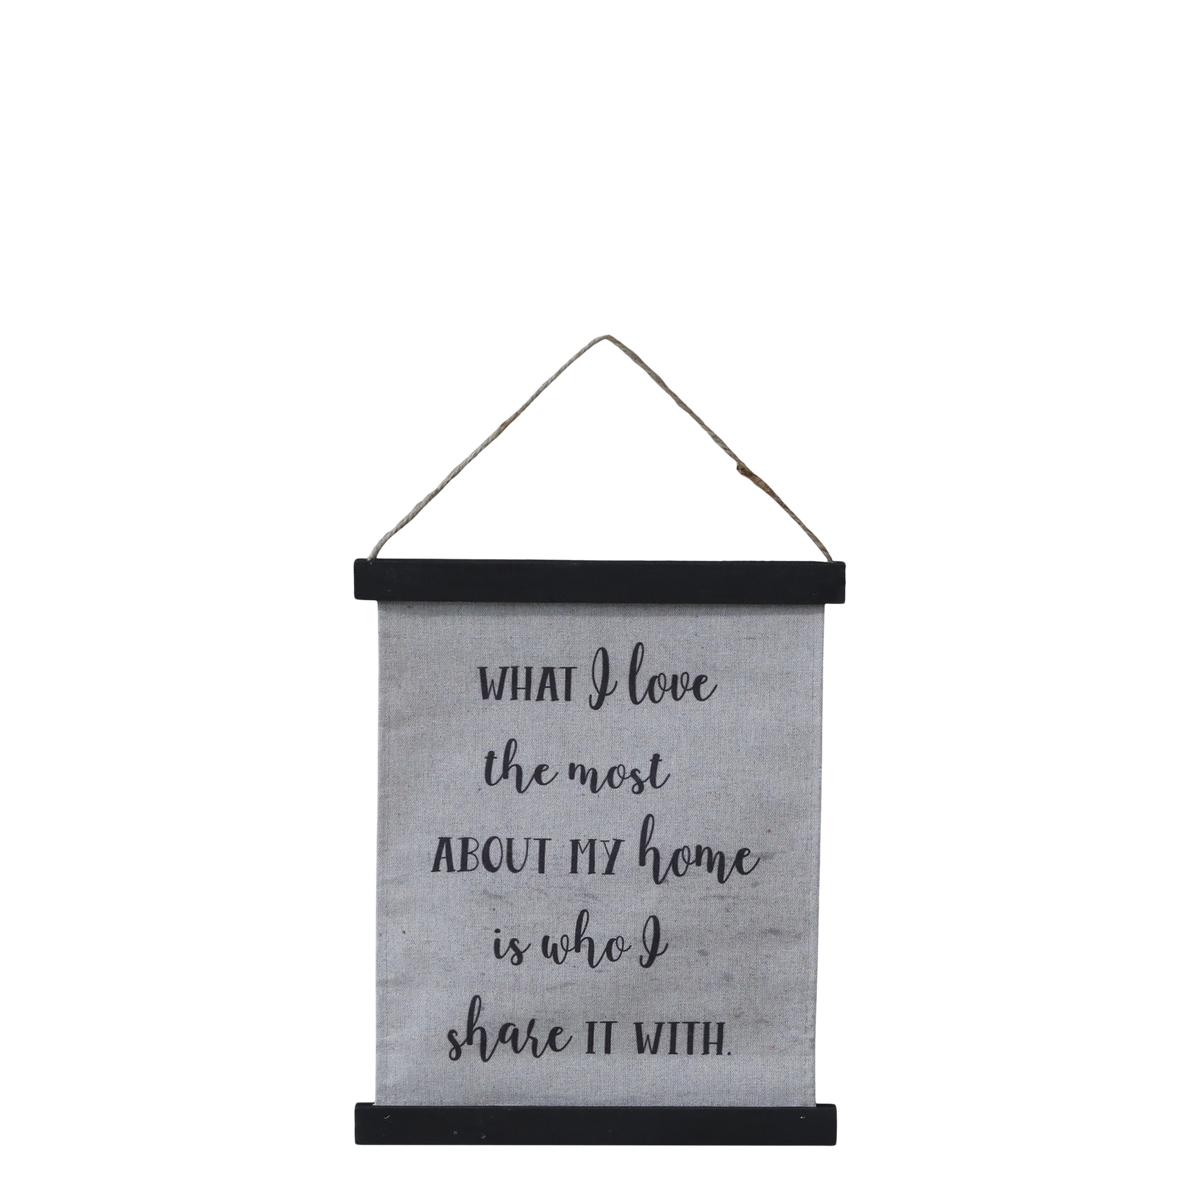 WHAT I love
the most
ABOUT MY home
is who I
share IT WITH.